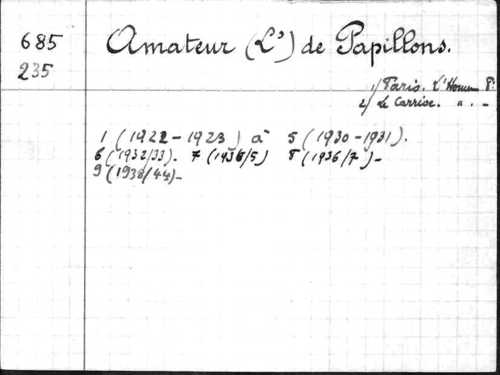 685 Amateur (L') de Papillons.
235
1/ Paris. L'Homme P.
2/ Le Carrise. " . -
1 (1922-1923) à 5 (1930-1931).
6 (1932/33). 7 (1934/5) 8 (1936/7)-
9 (1938/44)-